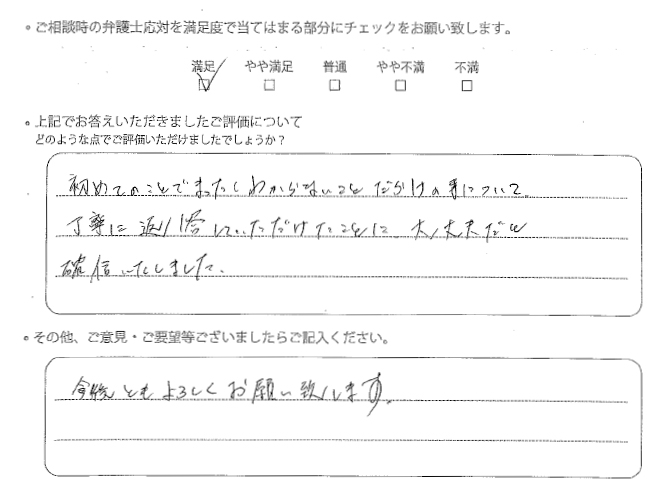 ・ご相談時の弁護士応対を満足度で当てはまる部分にチェックをお願い致します。
満足 やや満足 普通 やや不満 不満
・上記でお答えいただきましたご評価について
どのような点でご評価いただけましたでしょうか?
初めてのことでまったくわからないことだらけの事について、
丁寧に返り答していただけたことに、大丈夫だと
確信いたしました。
・その他、ご意見・ご要望等ございましたらご記入ください。
今後ともよろしくお願い致します。